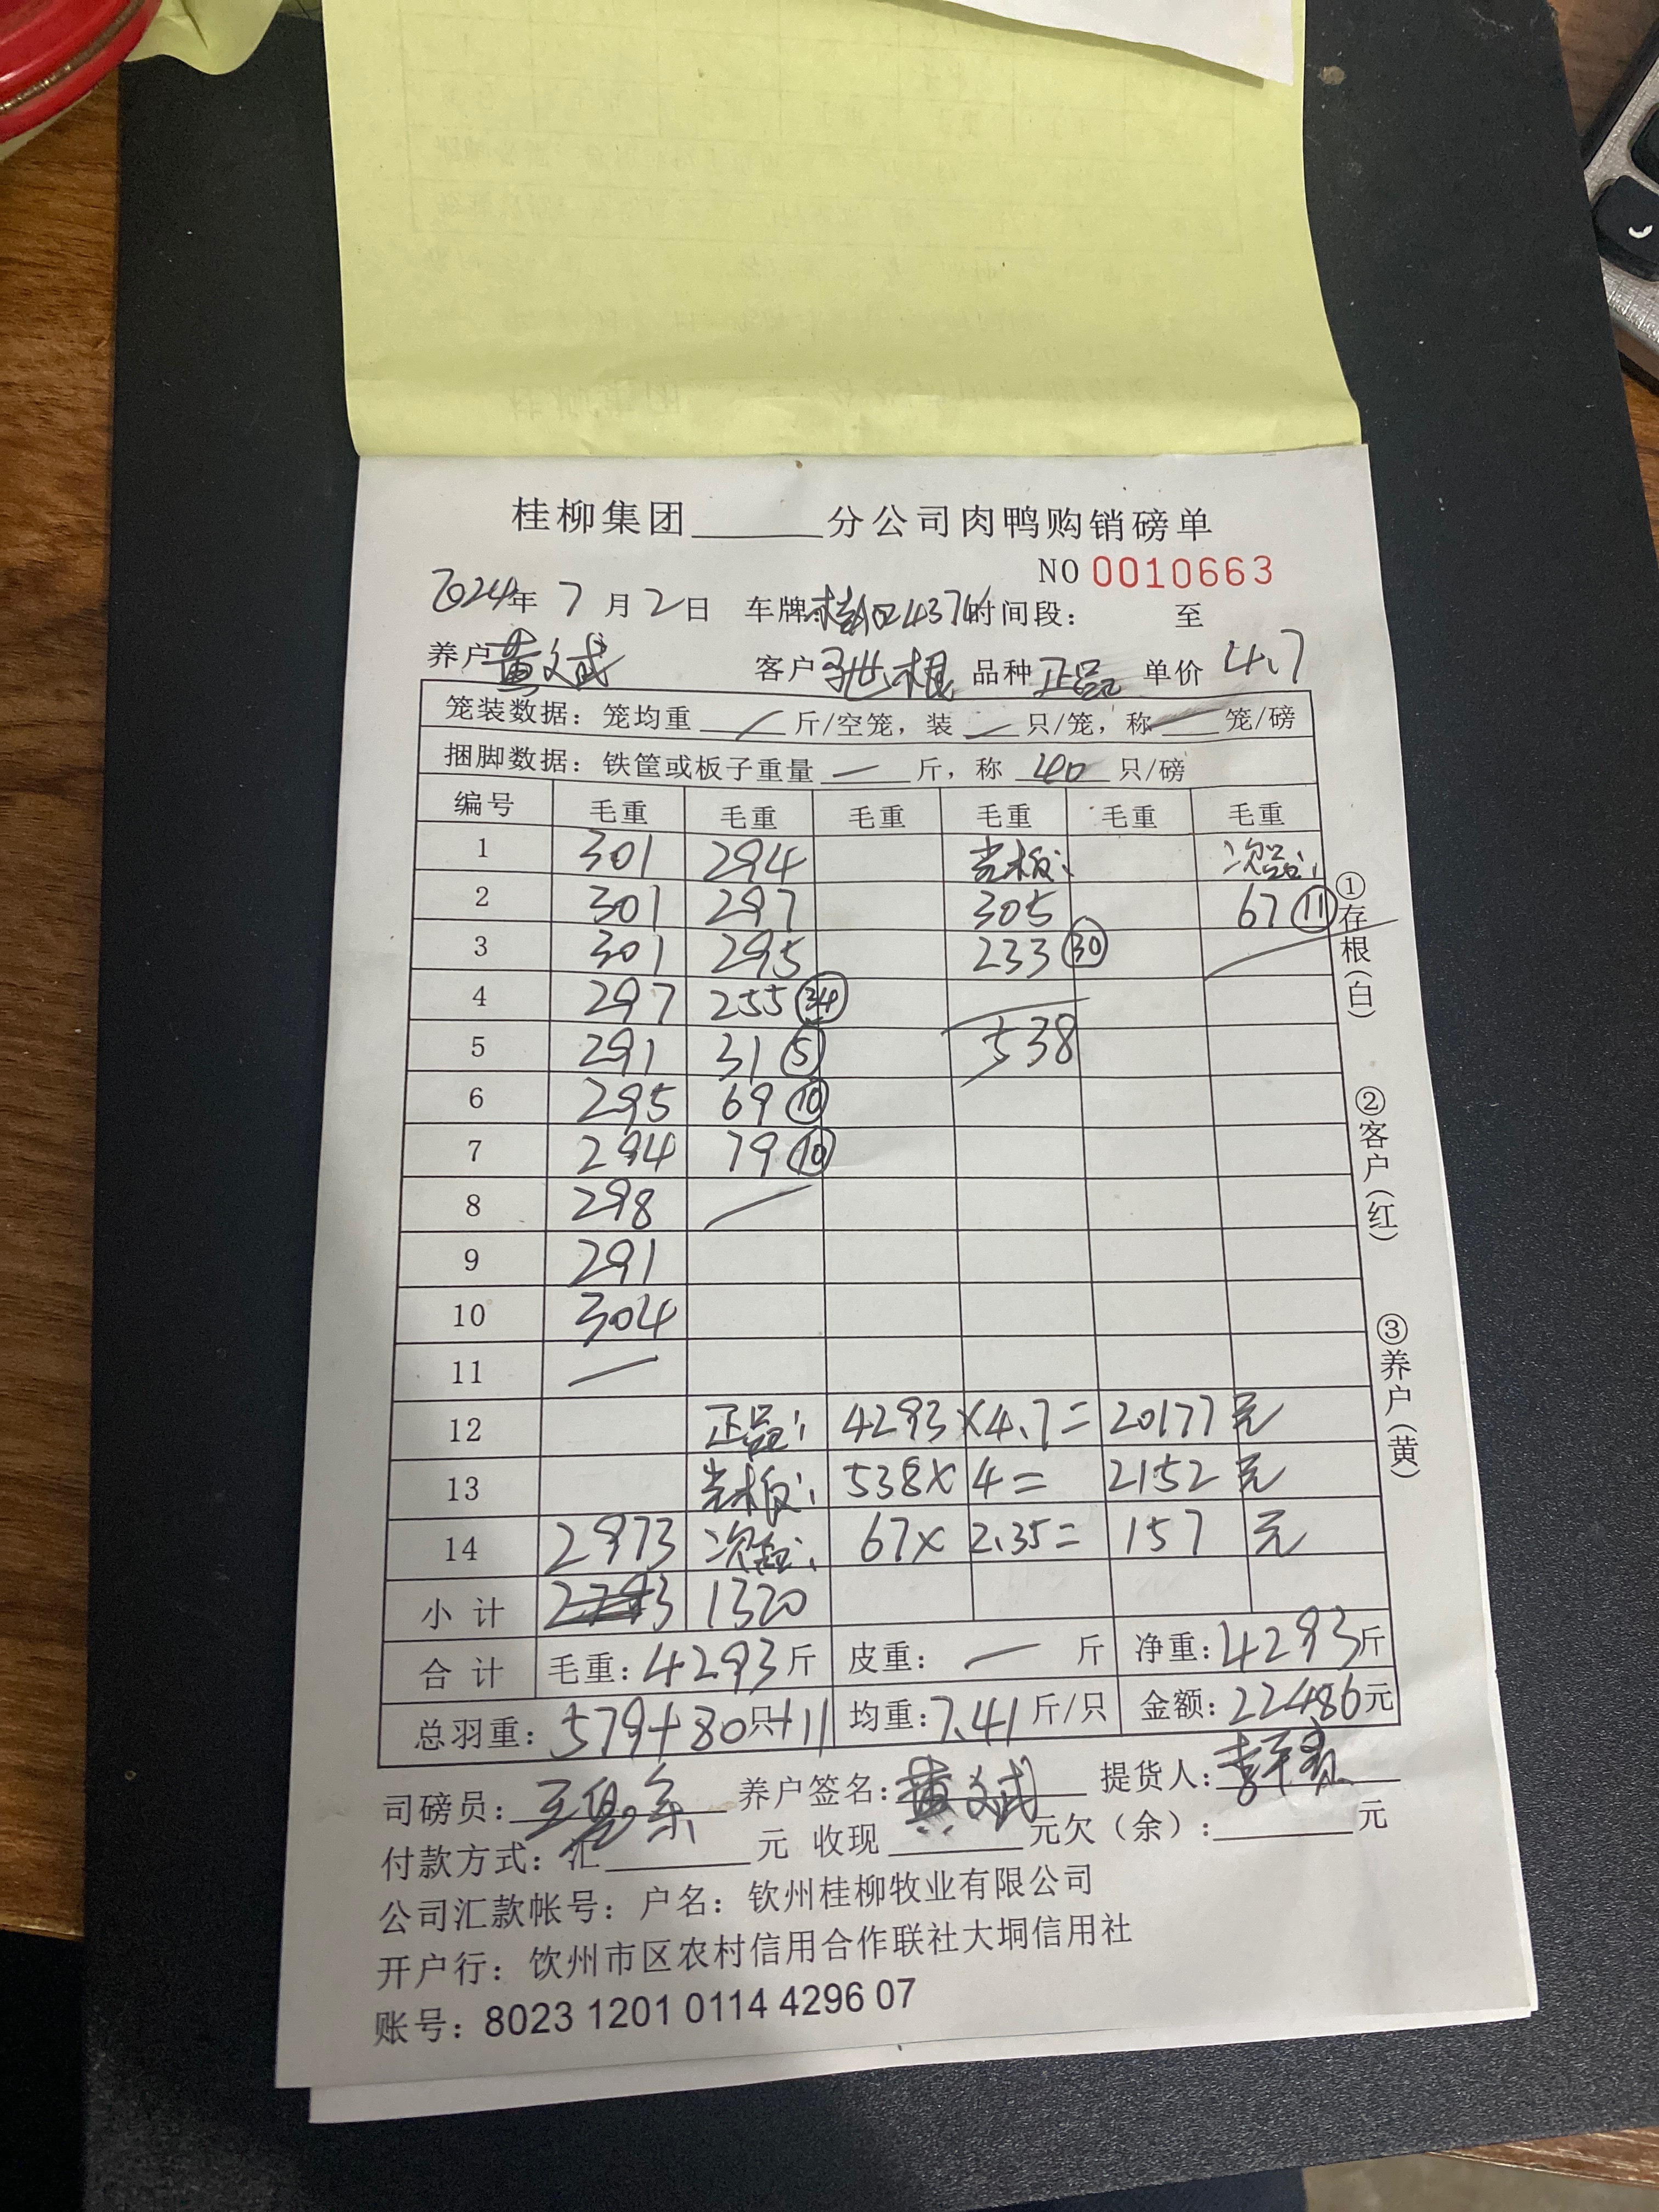 桂柳集团______分公司肉鸭购销磅单
NO 0010663
2024年 7 月 2 日 车牌: 4376 时间段: 至
养户 黄文斌 客户 根 品种 正品 单价 4.7
笼装数据: 笼均重 / 斤/空笼, 装 / 只/笼, 称 / 笼/磅
捆脚数据: 铁筐或板子重量 — 斤, 称 40 只/磅
编号 毛重 毛重 毛重 毛重 毛重 毛重
1 301 294 光板: 次品:
2 301 297 305 67 ⑪
3 301 295 233 ㉚
4 297 255 ㉞
5 291 31 ⑤ 538
6 295 69 ⑩
7 294 79 ⑩
8 298 /
9 291
10 304
11 /
12 正品: 4293×4.7= 20177 元
13 光板: 538× 4= 2152 元
14 2973 次品: 67× 2.35= 157 元
小 计 1320
合 计 毛重: 4293 斤 皮重: — 斤 净重: 4293 斤
总羽重: 579+80只+11 均重: 7.41 斤/只 金额: 22486 元
司磅员: 养户签名: 黄文斌 提货人:
付款方式: 汇______元 收现______元欠(余):______元
公司汇款帐号: 户名: 钦州桂柳牧业有限公司
开户行: 饮州市区农村信用合作联社大垌信用社
账号: 8023 1201 0114 4296 07
①存根(白)
②客户(红)
③养户(黄)